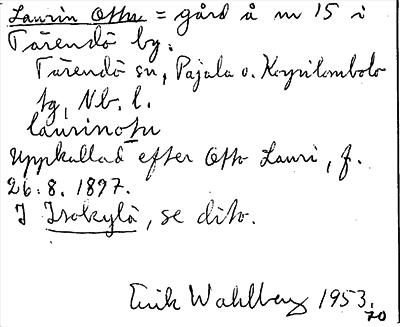 Laurin Otto = gård å nr 15 i
Tärendö by.
Tärendö sn, Pajala o. Korpilombolo
tg, Nb. l.
laurinotu
Uppkallad efter Otto Lauri, f.
26.8. 1897.
I Isokylä, se dito.
Erik Wahlberg 1953.
70